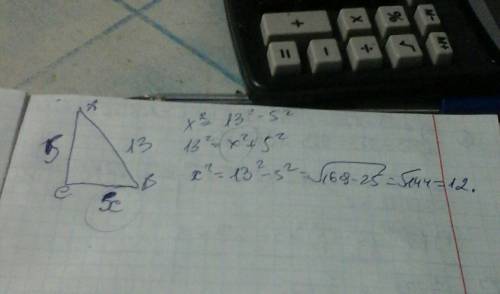 + × %
= − ÷ √
A
5 13
C B
x
x² = 13² - 5²
13² = x² + 5²
x² = 13² - 5² = √169-25 = √144 = 12.